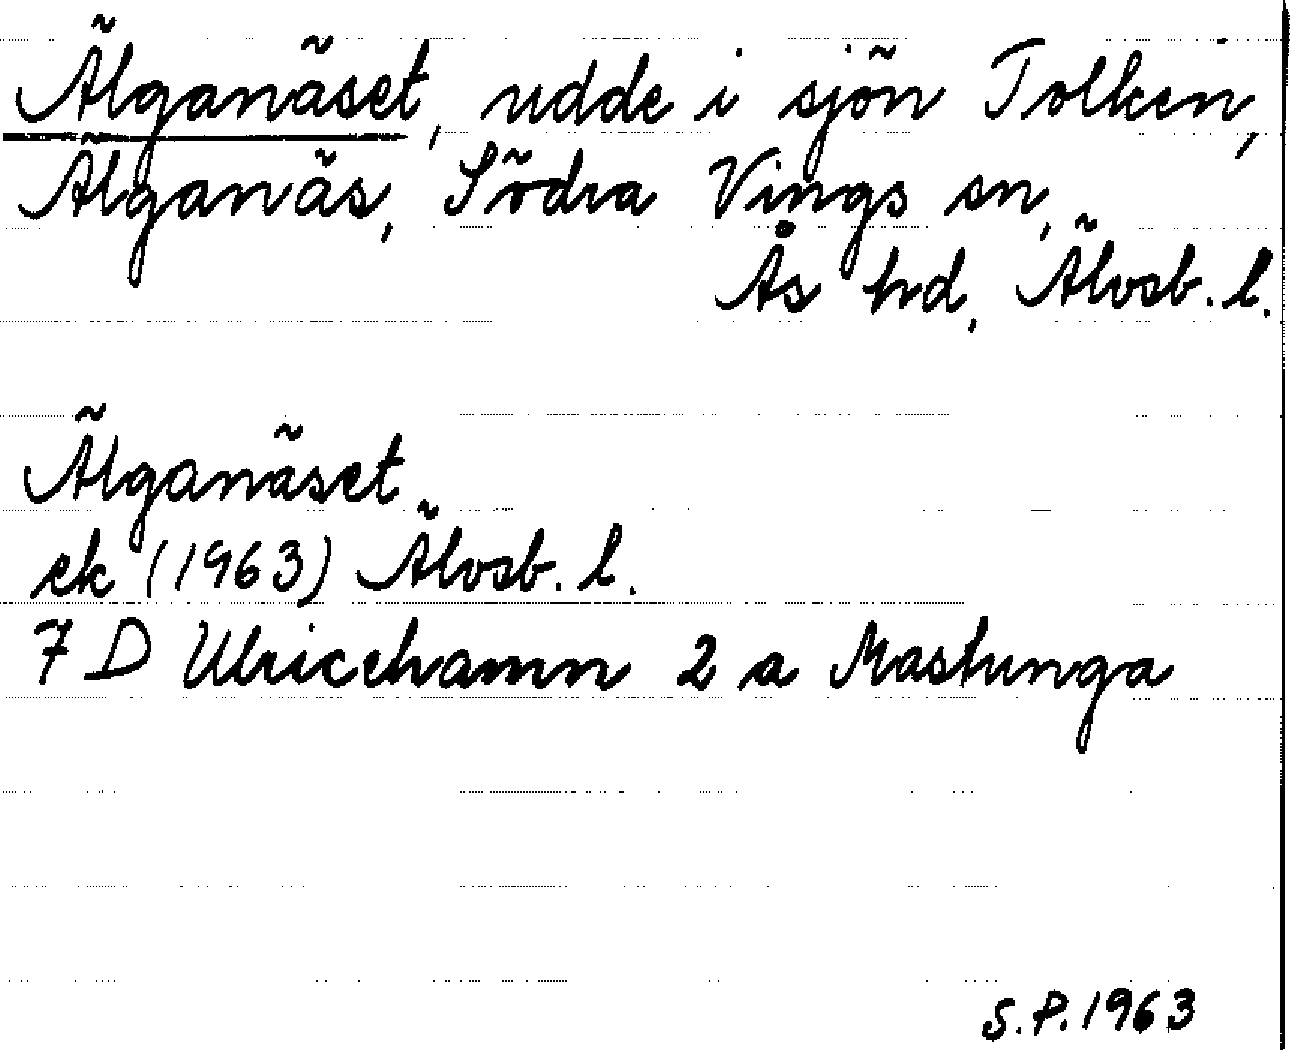 Älganäset, udde i sjön Tolken,
Älganäs, Södra Vings sn,
Ås hd, Älvsb. l.
Älganäset
ek (1963) Älvsb. l.
7 D Ulricehamn 2 a Mastunga
S.P. 1963